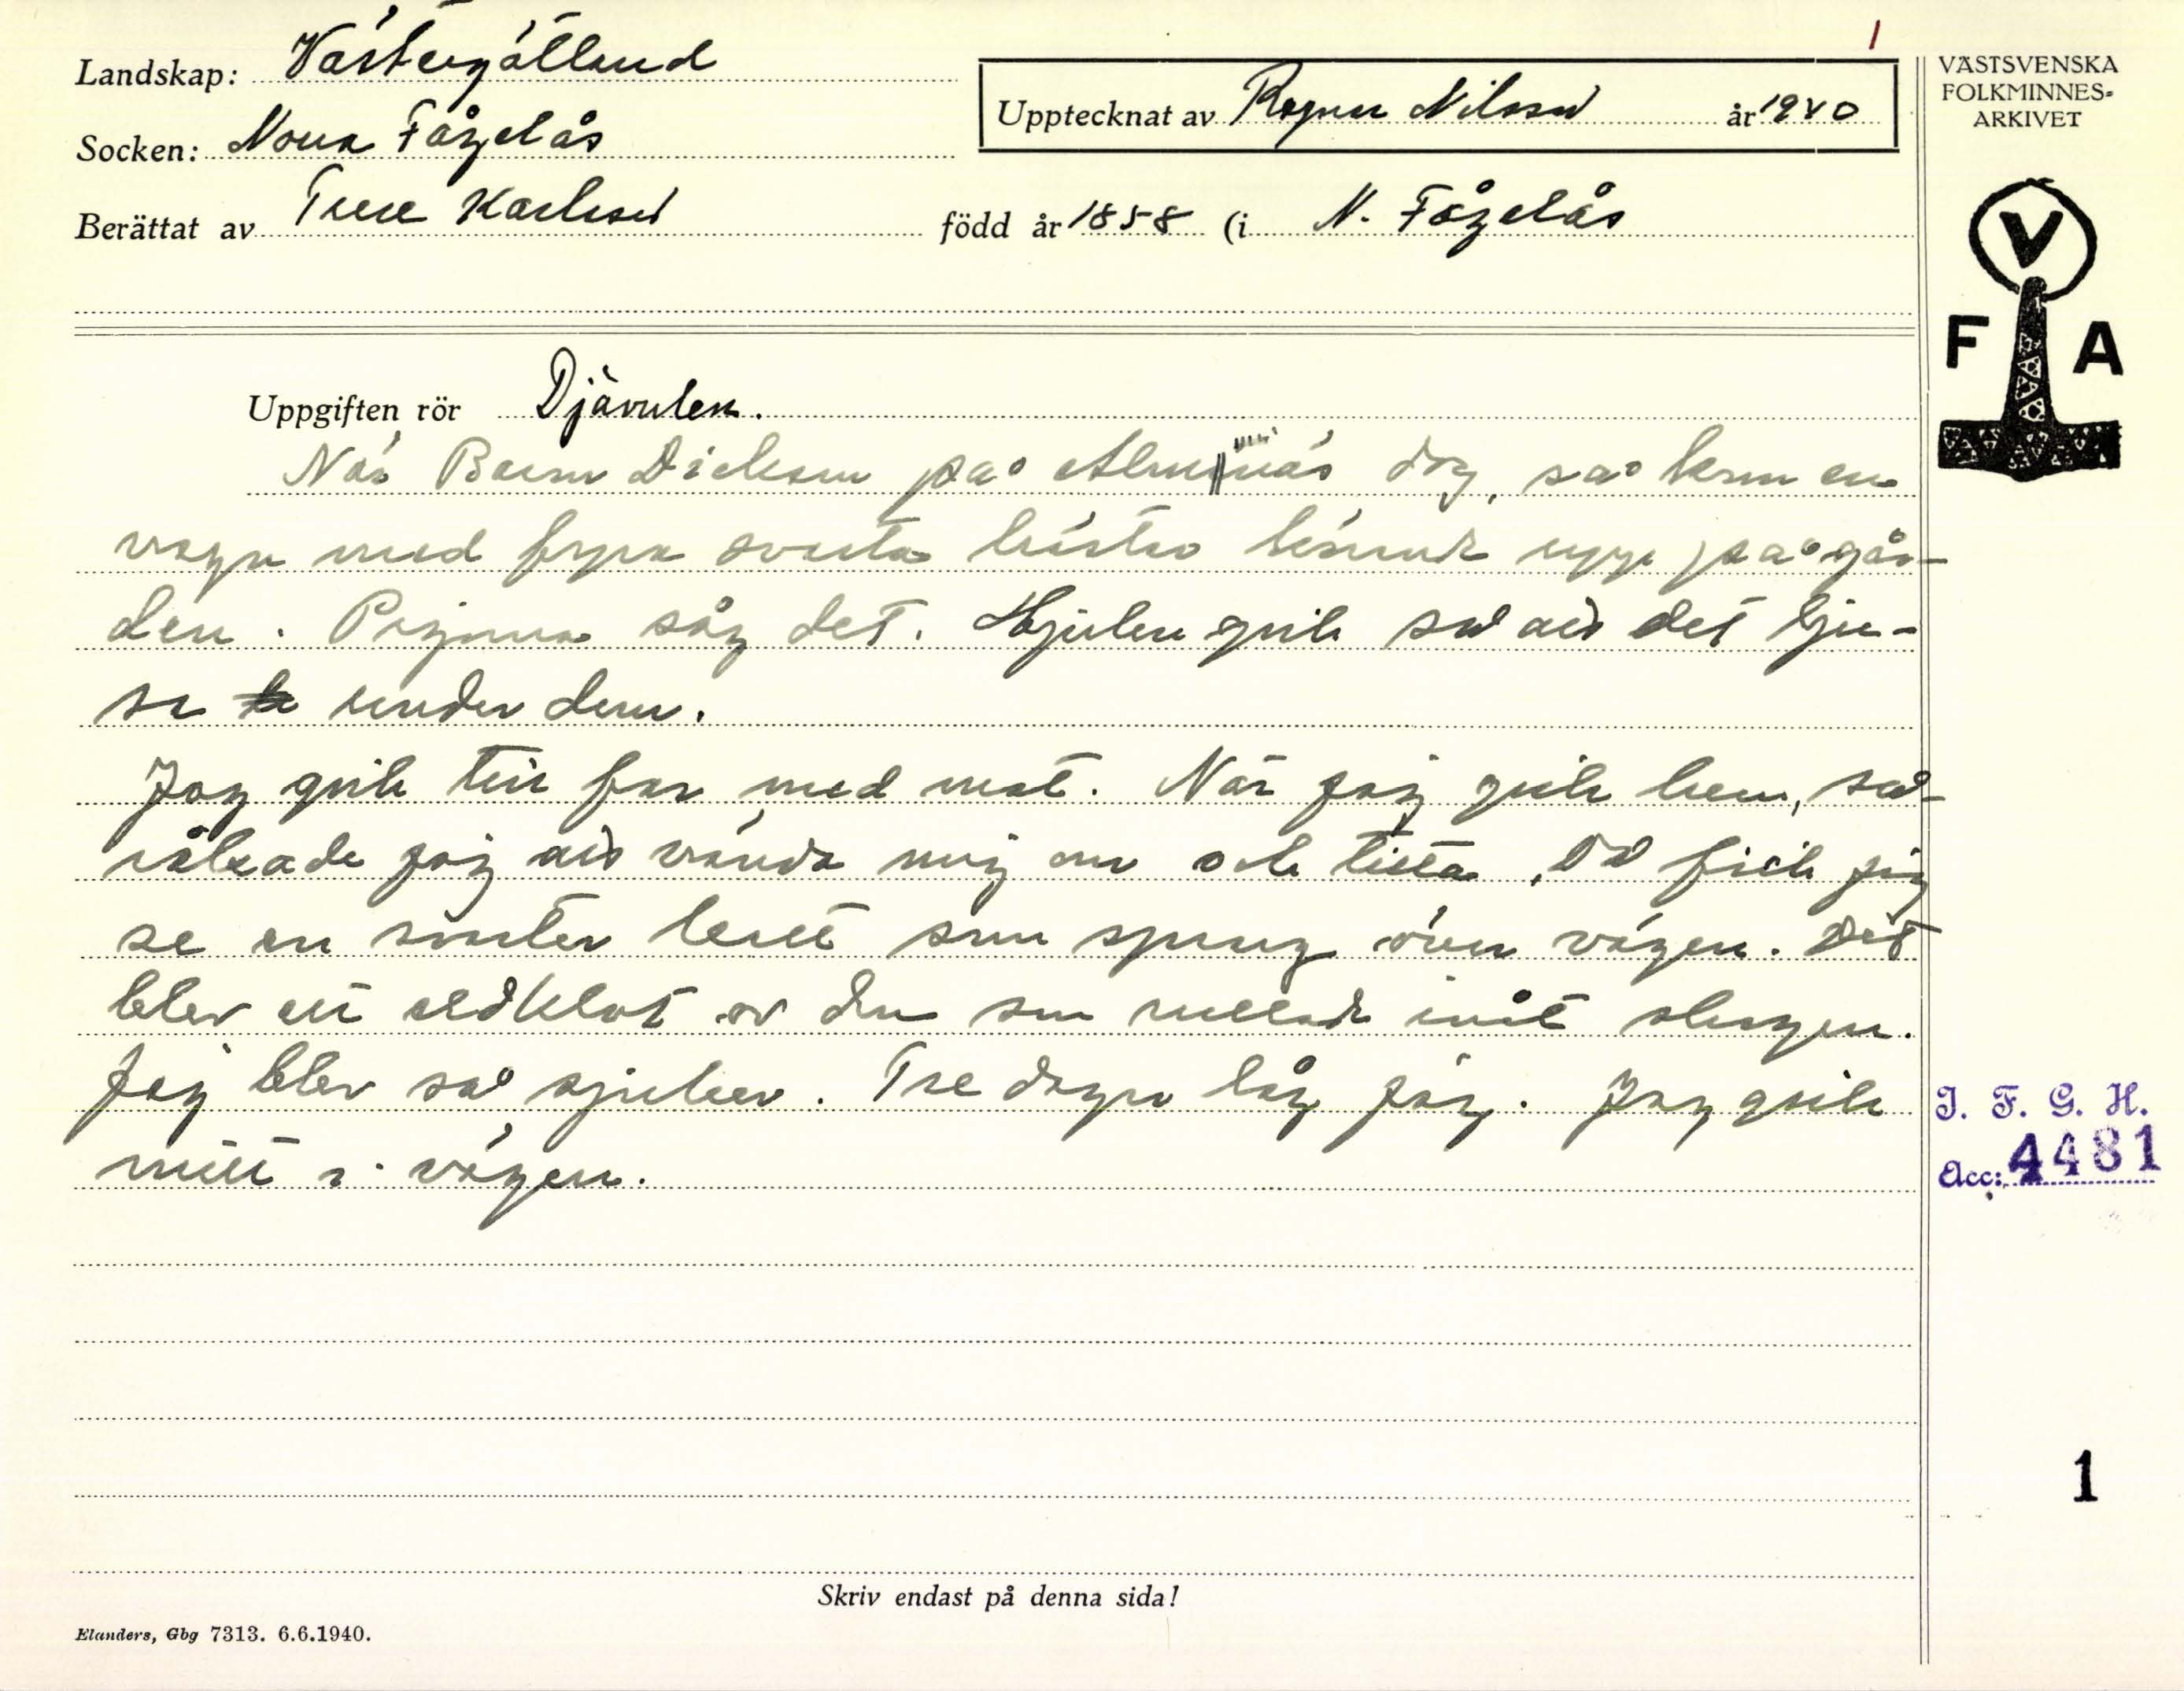 1
Landskap: Västergötland
Socken: Norra Fågelås
Upptecknat av Ragnar Nilsson år 1940
Berättat av Ture Karlsson född år 1858 (i N. Fågelås
VÄSTSVENSKA
FOLKMINNES-
ARKIVET
V
F A
Uppgiften rör Djävulen.
När Baron Dickson på Almnäs dog, så kom en
vagn med fyra svarta hästar körande upp på går-
den. Pigorna såg det. Hjulen gick så att det lju-
sa under dem.
Jag gick till far med mat. När jag gick hem, så
råkade jag att vända mig om och titta. Då fick jag
se en svarter katt som sprang över vägen. Det
blev ett eldklot av den som rullade inåt skogen.
Jag blev så sjuker. Tre dagar låg jag. Jag gick
mitt i vägen.
I. F. G. H.
Acc: 4481
1
Skriv endast på denna sida!
Elanders, Gbg 7313. 6.6.1940.